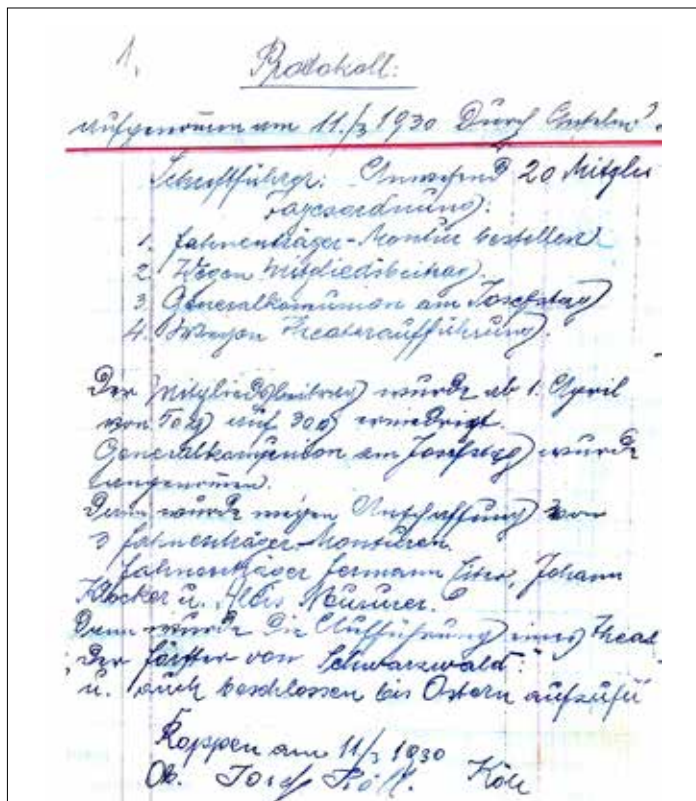 1. Protokoll:
aufgenommen am 11./3 1930 Durch
Schriftführer: Anwesend 20 Mitglie
Tagesordnung:
1. Fahnenträger-Montur bestellen
2. Wegen Mitgliedsbeitrag.
3. Generalkomunion am Josefstag
4. Wegen Theateraufführung.
Der Mitgliedsbeitrag wurde ab 1. April
von 50g auf 30g erniedrigt.
Generalkomunion am Josefstag wurde
angenomen.
Dann wurde wegen Anschaffung von
3 Fahnenträger-Monturen.
Fahnenträger Hermann Johann
Klocker u. Alois Neururer.
Dann wurde die Aufführung eines Theat
"Der Förster von Schwarzwald"
u. auch beschlossen bis Ostern aufzufü
Roppen am 11/3 1930
Ob. Josef Köll